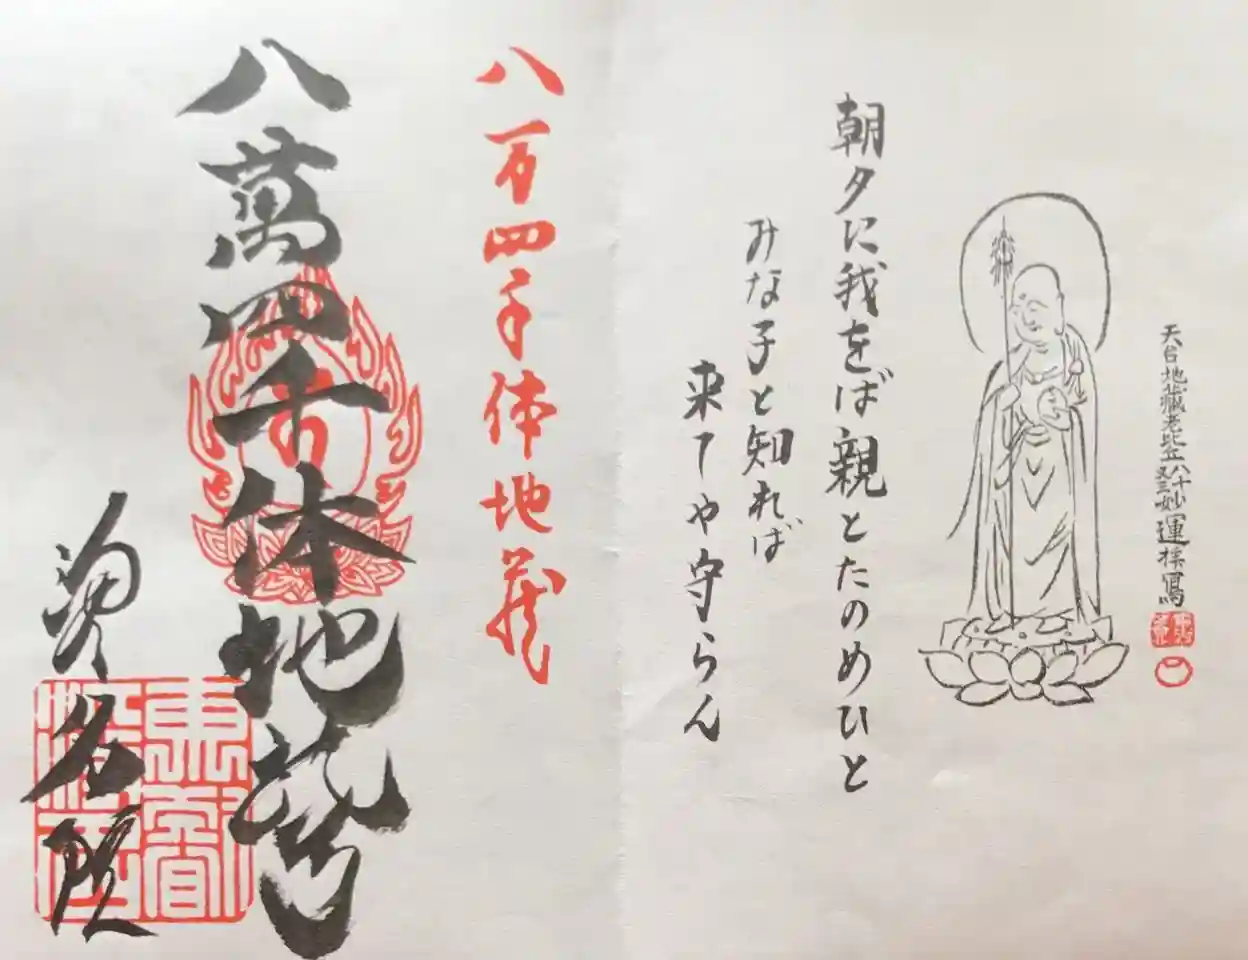 天台地蔵老比丘八十
又三妙運採写
朝夕に我をば親とたのめひと
みな子と知れば
来てや守らん
八万四千体地蔵
八萬四千体地蔵
浄名院